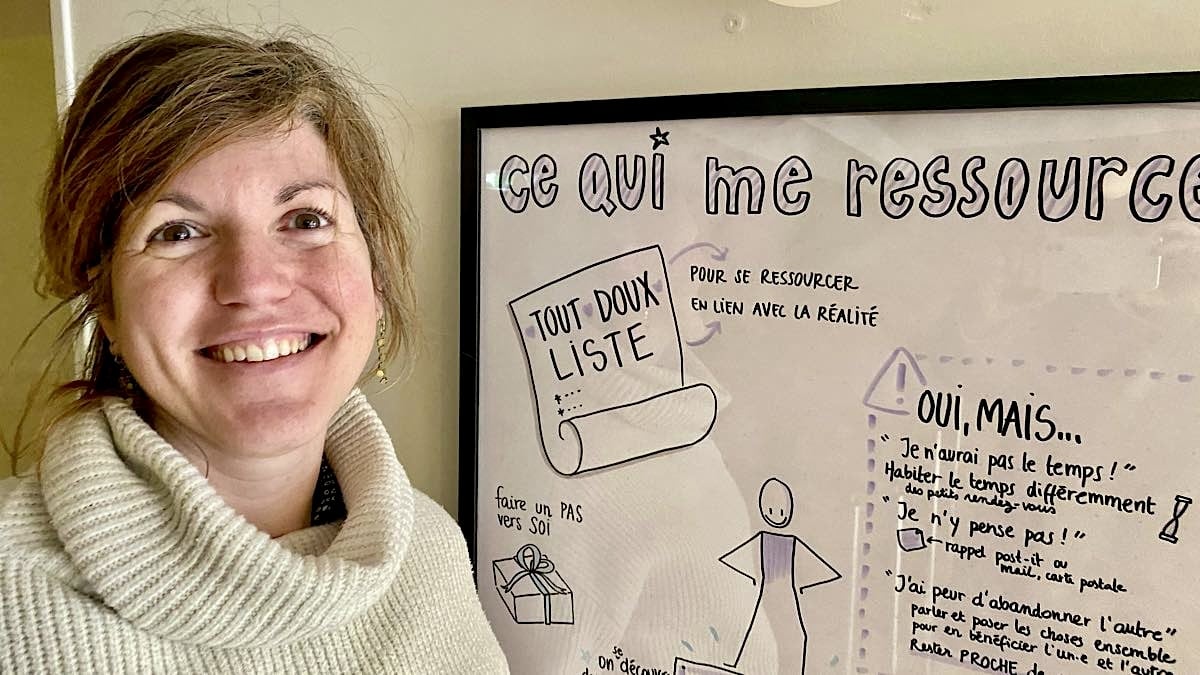 ce qui me ressource
TOUT DOUX
LISTE
POUR SE RESSOURCER
EN LIEN AVEC LA RÉALITÉ
OUI, MAIS...
"Je n'aurai pas le temps !"
Habiter le temps différemment
des petits rendez-vous
"Je n'y pense pas !"
rappel post-it ou
mail, carte postale
"J'ai peur d'abandonner l'autre"
parler et poser les choses ensemble
pour en bénéficier l'un·e et l'autre
Rester PROCHE de
faire un PAS
vers SOI
se
on découvre